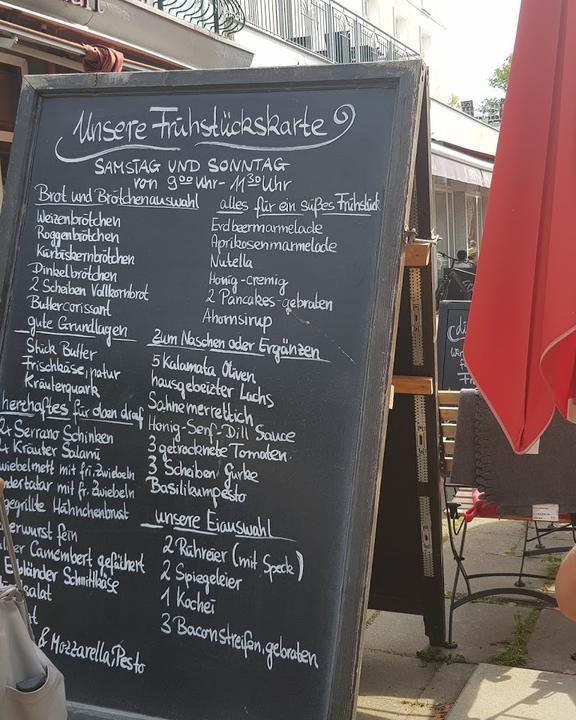 Unsere Frühstückskarte
SAMSTAG UND SONNTAG
von 9⁰⁰ Uhr - 11³⁰ Uhr
Brot und Brötchenauswahl
Weizenbrötchen
Roggenbrötchen
Kürbiskernbrötchen
Dinkelbrötchen
2 Scheiben Vollkornbrot
Buttercorissant
gute Grundlagen
Stück Butter
Frischkäse, natur
Kräuterquark
herzhaftes für oben drauf
Serrano Schinken
Kräuter Salami
wiebelmett mit fr. Zwiebeln
dertatar mit fr. Zwiebeln
gegrillte Hähnchenbrust
erwurst fein
er Camembert gefächert
Ebländer Schnittkäse
salat
& Mozzarella, Pesto
alles für ein süßes Frühstück
Erdbeermarmelade
Aprikosenmarmelade
Nutella
Honig-cremig
2 Pancakes-gebraten
Ahornsirup
Zum Naschen oder Ergänzen
5 Kalamata Oliven
hausgebeizter Lachs
Sahnemerrettich
Honig-Senf-Dill Sauce
3 getrocknete Tomaten
3 Scheiben Gurke
Basilikumpesto
unsere Eiauswahl
2 Rühreier (mit Speck)
2 Spiegeleier
1 Kochei
3 Baconstreifen, gebraten